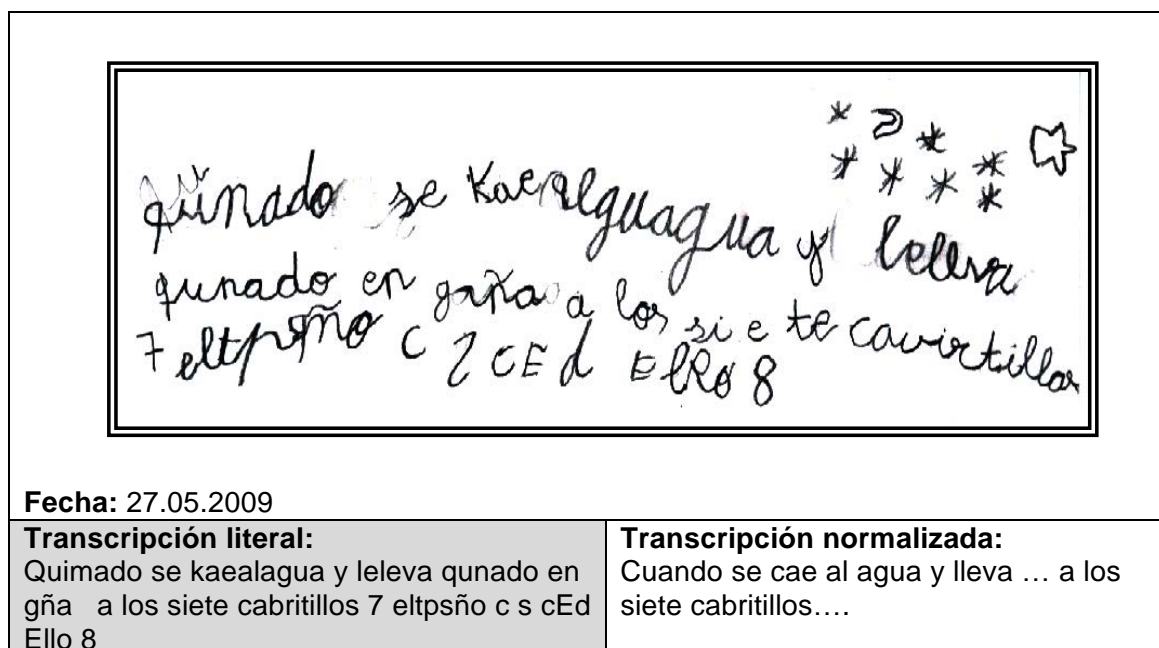 qunado se kaealguagua y leleva
qunado en gaña a los si e te cavirtillos
7 eltpsño c 2 cEd ElRo 8
Fecha: 27.05.2009
Transcripción literal:
Quimado se kaealagua y leleva qunado en
gña a los siete cabritillos 7 eltpsño c s cEd
Ello 8
Transcripción normalizada:
Cuando se cae al agua y lleva … a los
siete cabritillos….